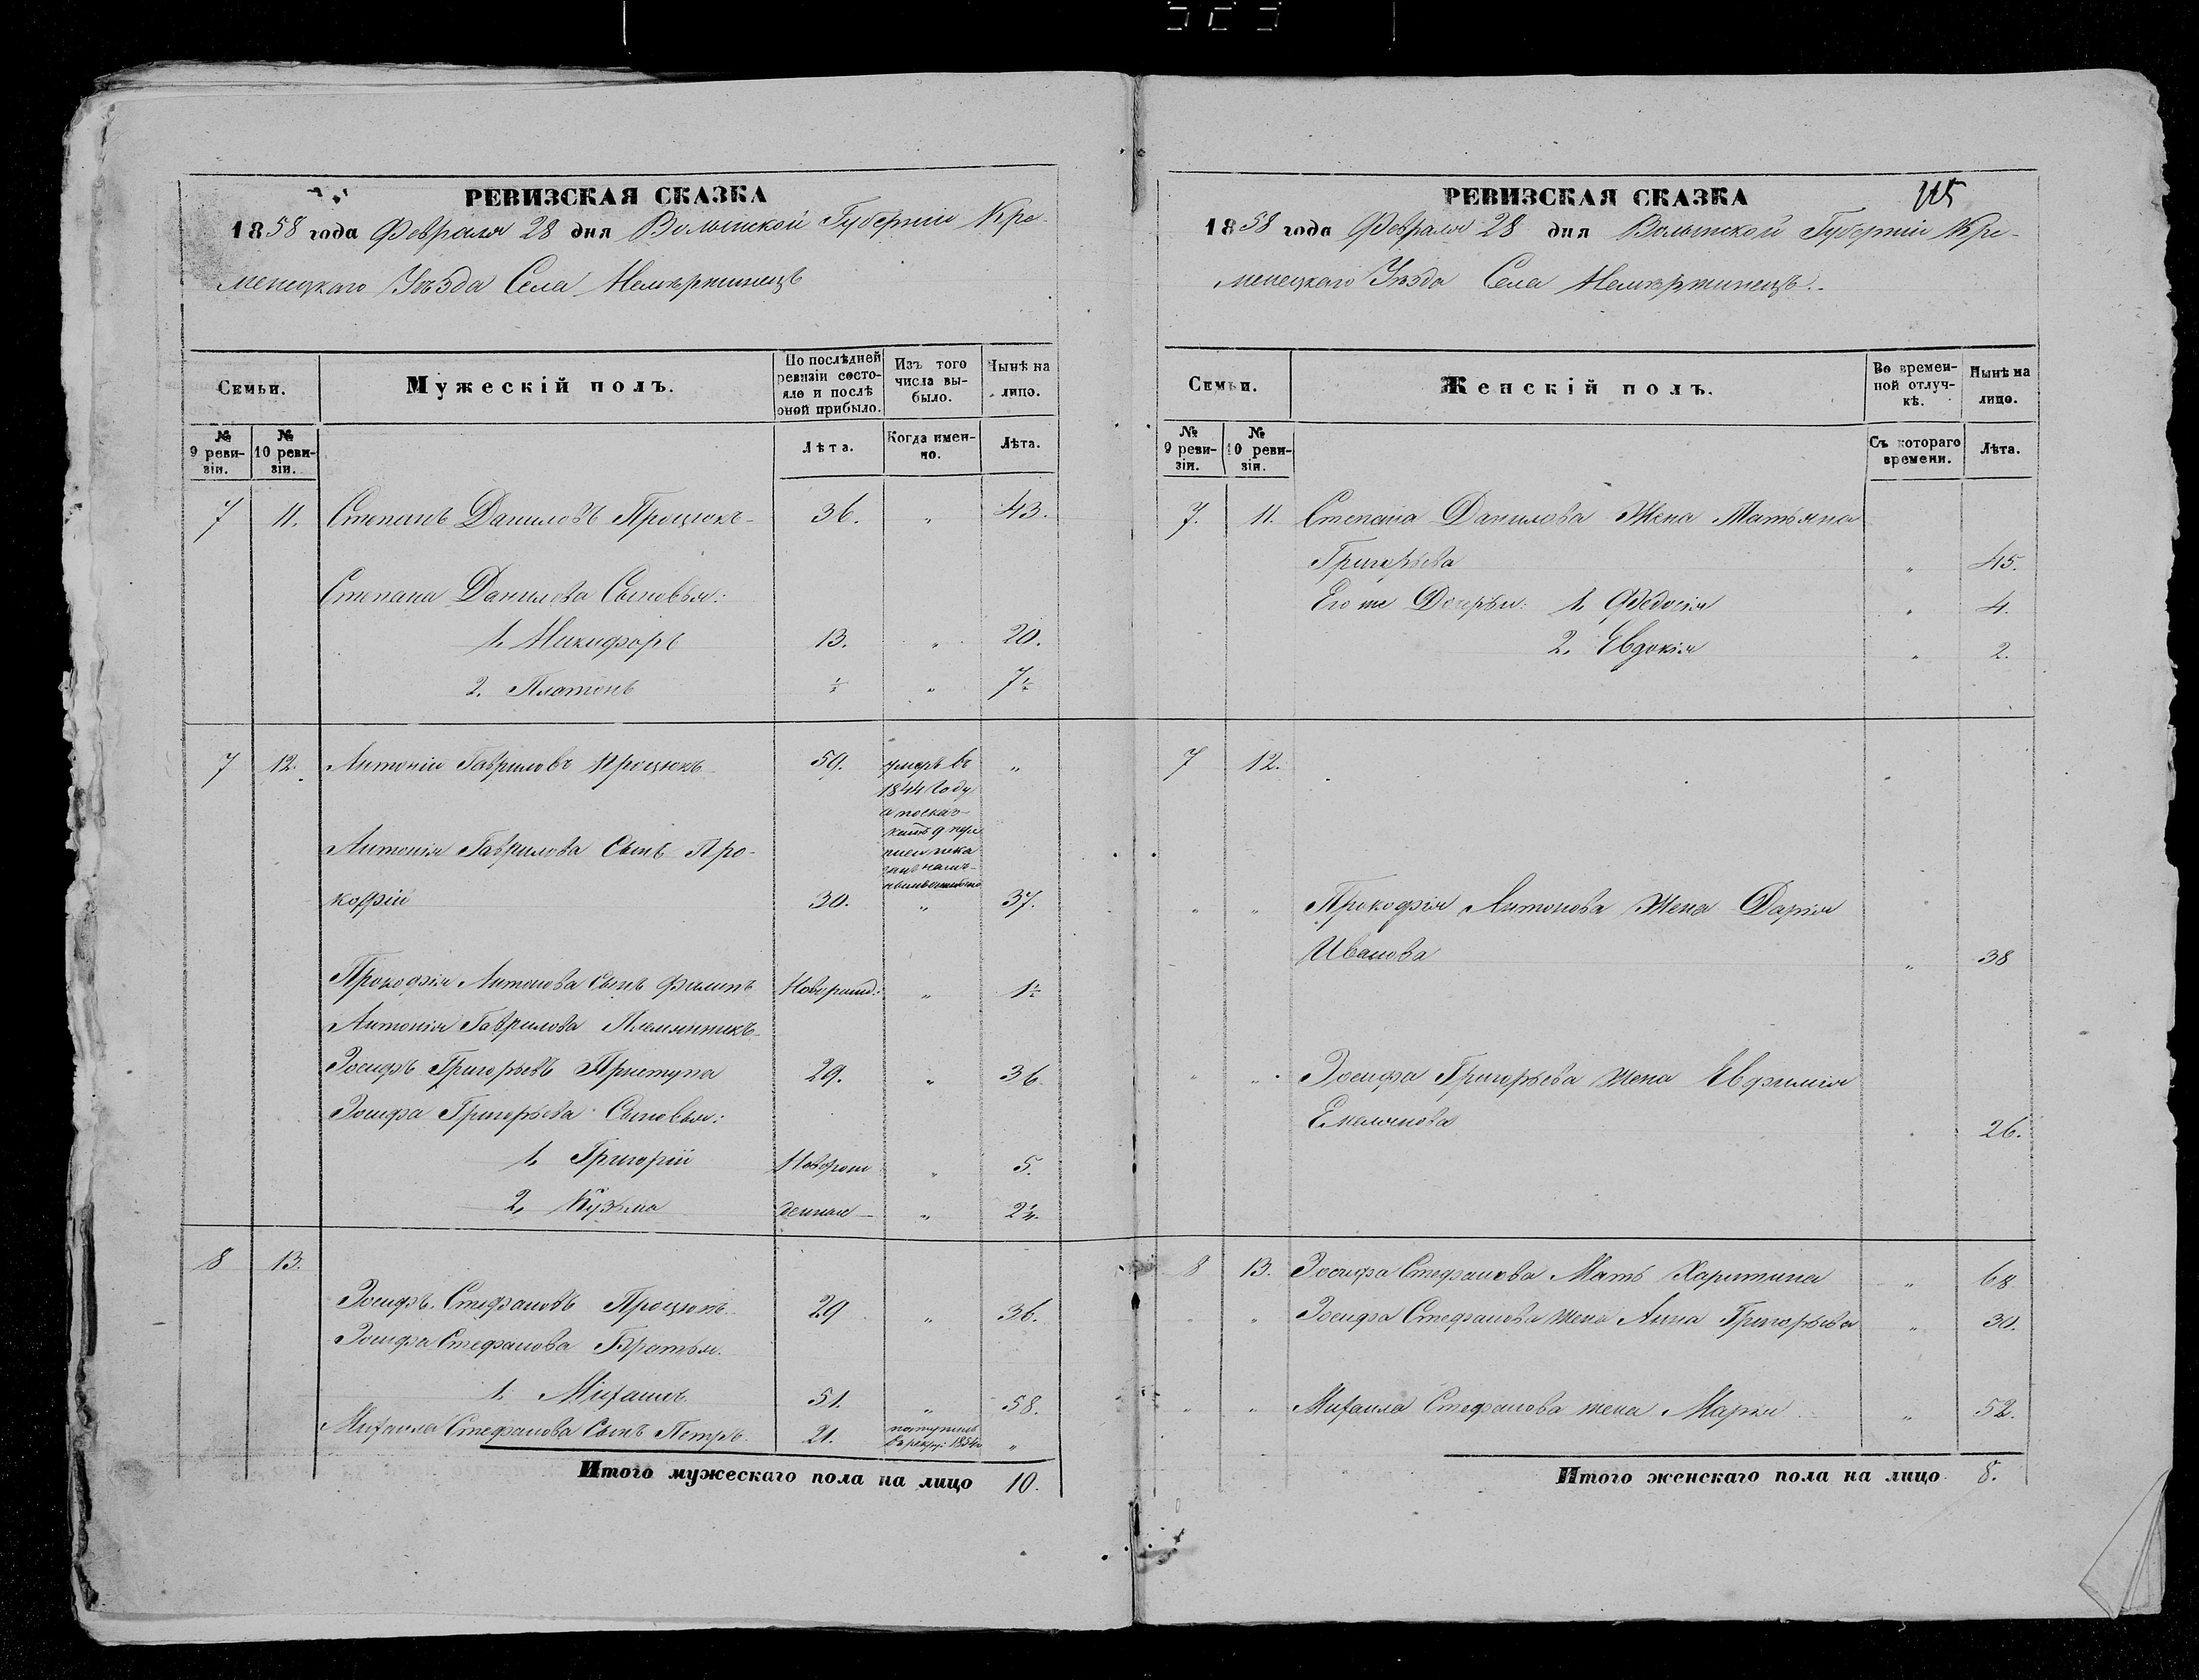 РЕВИЗСКАЯ СКАЗКА
1858 года Февраля 28 дня Волынской Губерніи Кре-
менецкаго Уѣзда Села
Семьи.
Мужескій полъ.
По послѣдней ревизіи состояло и послѣ оной прибыло.
Изъ того числа выбыло.
Нынѣ на лицо.
№ 9 ревизіи.
№ 10 ревизіи.
Лѣта.
Когда именно.
Лѣта.
7 11. Степанъ Даниловъ Процюкъ 36. „ 43.
Степана Данилова Сыновья:
1. Никифоръ 13. „ 20.
2. Платонъ ½ „ 7½
7 12. Антоній Гавриловъ Процюкъ 59. умеръ въ „
1844 году
Антонія Гаврилова Сынъ Про-
кофій 30. „ 37.
Прокофія Антонова Сынъ Филипъ Новорожд: „ 1½
Антонія Гаврилова Племянникъ
Іосифъ Григорьевъ Приступа 29. „ 36.
Іосифа Григорьева Сыновья:
1. Григорій Новорож „ 5.
2. Кузьма денные „ 2¼.
8 13.
Іосифъ Стефановъ Процюкъ 29 „ 36.
Іосифа Стефанова Братья.
1. Михаилъ 51. „ 58.
Михаила Стефанова Сынъ Петръ 21. поступилъ
въ рекру: 1854 „
Итого мужескаго пола на лицо 10.
115
РЕВИЗСКАЯ СКАЗКА
1858 года Февраля 28 дня Волынской Губерніи Кре-
менецкаго Уѣзда Села
Семьи.
Женскій полъ.
Во временной отлучкѣ.
Нынѣ на лицо.
№ 9 ревизіи.
№ 10 ревизіи.
Съ котораго времени.
Лѣта.
7. 11. Степана Данилова Жена Татьяна
Григорьева „ 45.
Его же Дочери: 1. Федосія „ 4.
2. Евдокія „ 2.
7 12.
„ „ Прокофія Антонова Жена Дарія
Иванова „ 38
„ „ Іосифа Григорьева жена Евфимія
Емельянова 26.
8 13. Іосифа Стефанова Мать Харитина „ 68
„ „ Іосифа Стефанова жена Анна Григорьева „ 30.
„ „ Михаила Стефанова жена Марія „ 52.
Итого женскаго пола на лицо 8.